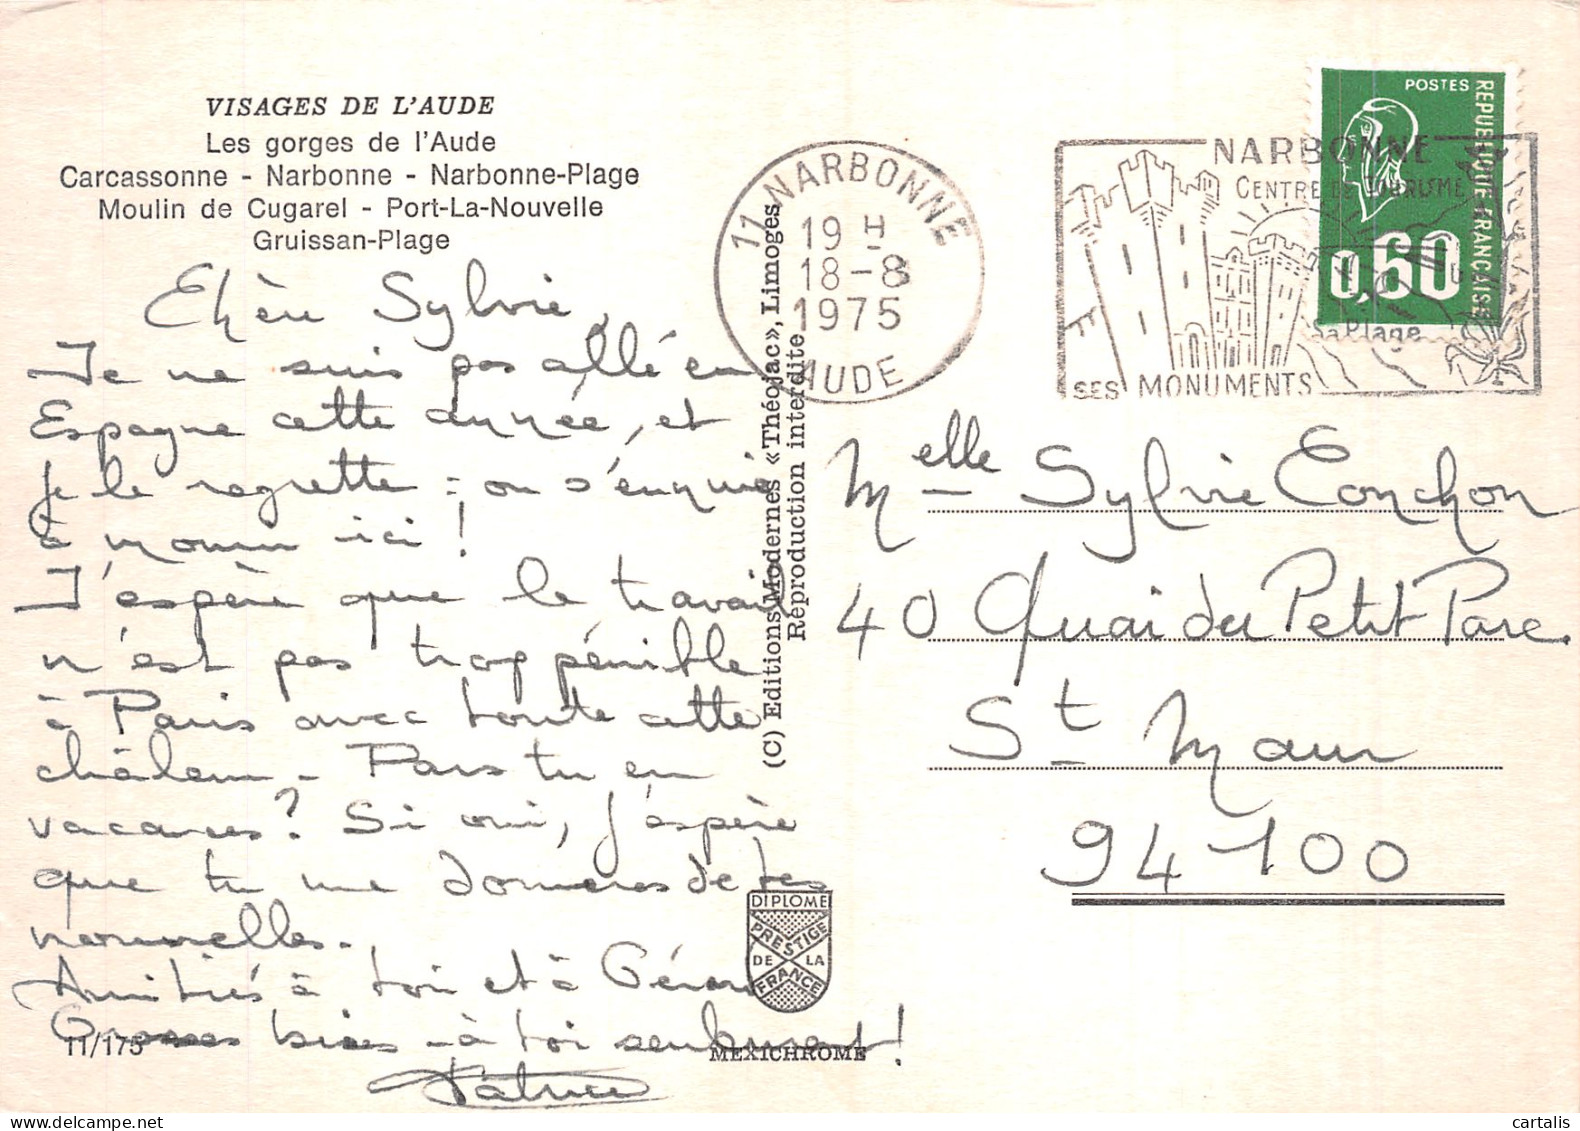 VISAGES DE L'AUDE
Les gorges de l'Aude
Carcassonne - Narbonne - Narbonne-Plage
Moulin de Cugarel - Port-La-Nouvelle
Gruissan-Plage
Chère Sylvie,
Je ne suis pas allé en
Espagne cette année, et
je le regrette : on s'ennuie
à mourir ici !
J'espère que le travail
n'est pas trop pénible
à Paris avec toute cette
chaleur - Pars tu en
vacances ? Si oui, j'espère
que tu me donneras de tes
nouvelles.
Amitiés à toi et à Gérard
Grosses bises à toi seulement !
Patrice
11/175
(C) Editions Modernes «Théojac», Limoges
Reproduction interdite
DIPLOME
PRESTIGE
DE LA
FRANCE
MEXICHROME
11 NARBONNE
19 H
18-8
1975
AUDE
NARBONNE
CENTRE DE TOURISME
Sa Plage
SES MONUMENTS
POSTES
REPUBLIQUE FRANCAISE
0,60
Melle Sylvie Conchon
40 Quai du Petit Parc
St Maur
94100
cartalis